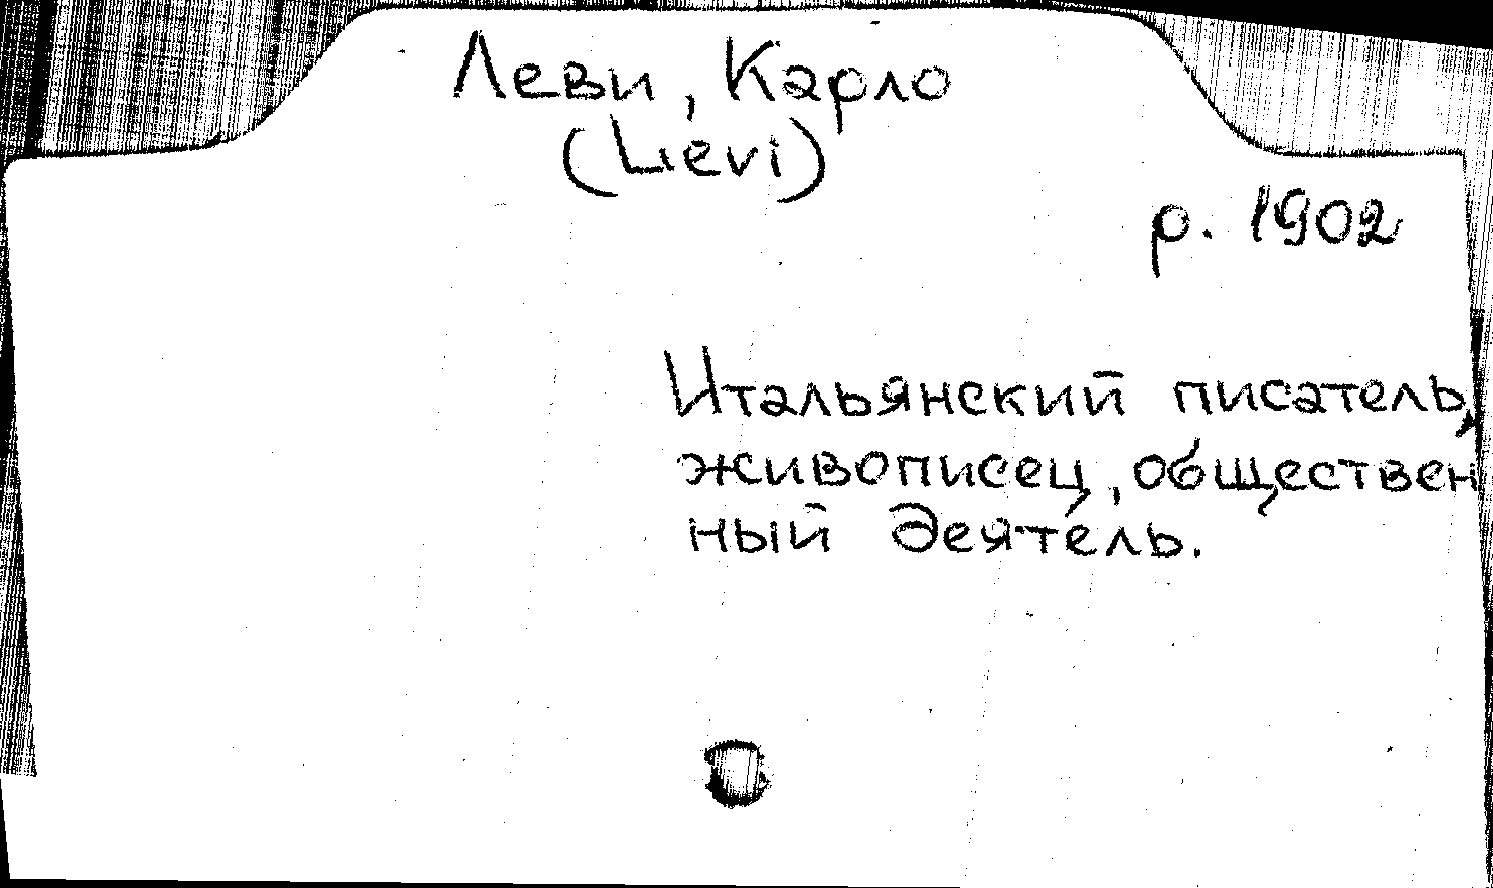 Леви, Карло
(Levi)
р. 1902
Итальянский писатель,
живописец, обществен
ный деятель.